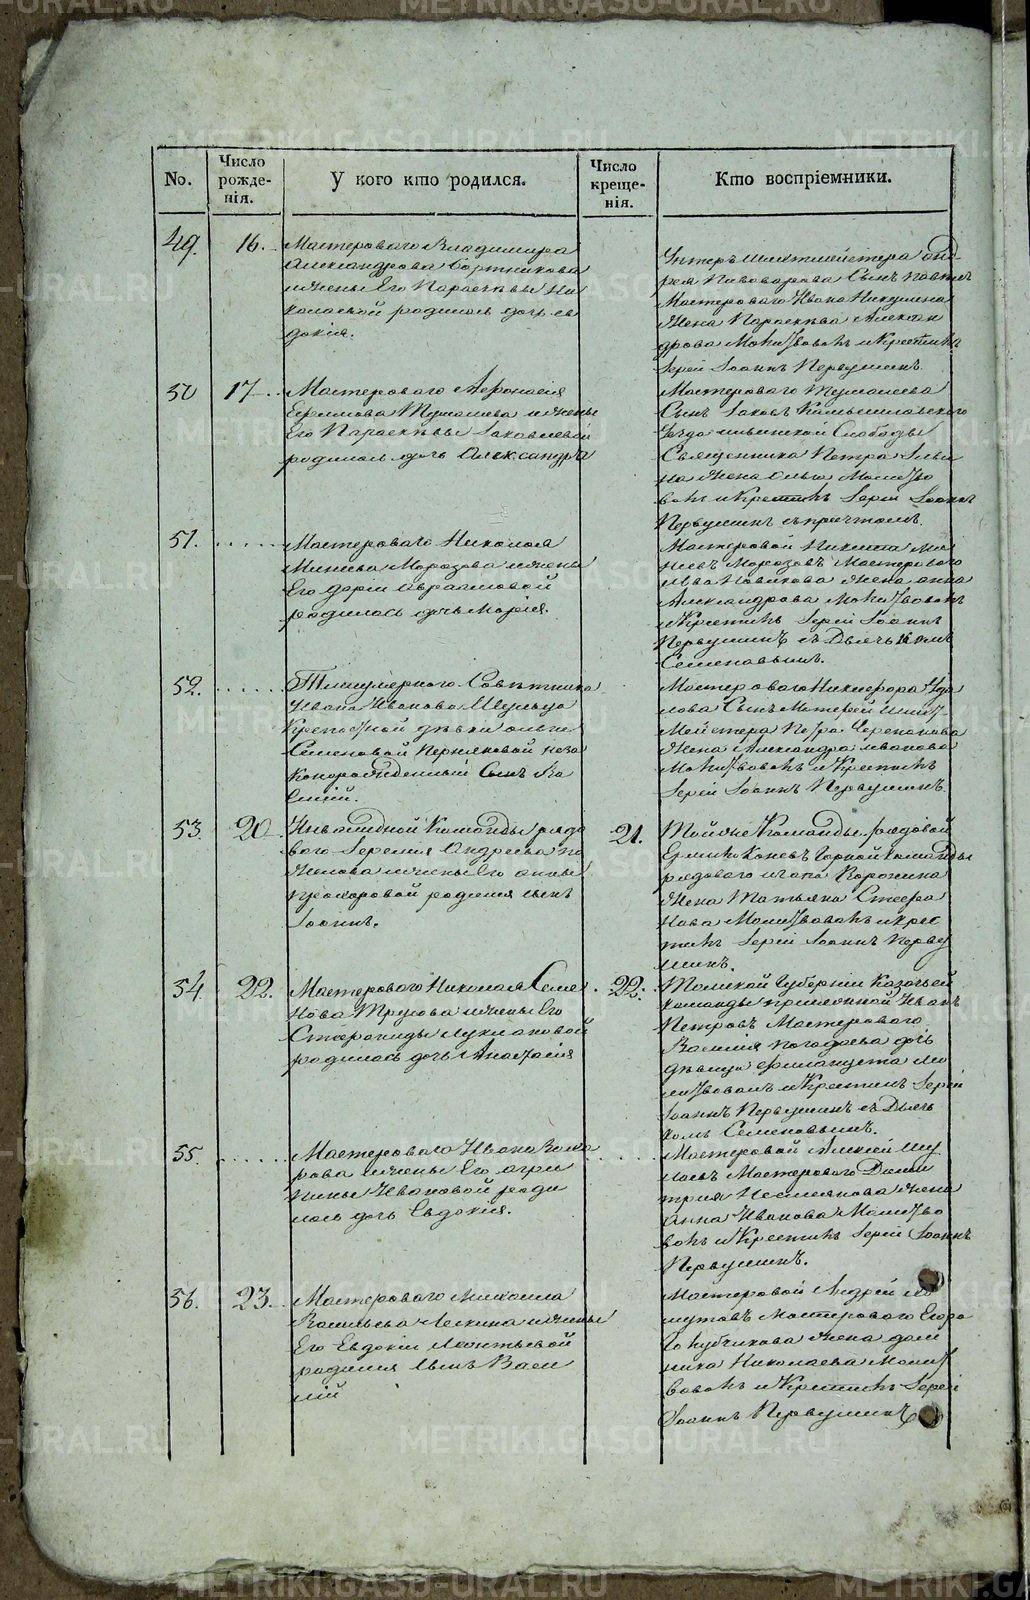 No.
Число рожде-нія.
У кого кто родился.
Число креще-нія.
Кто воспріемники.
49. 16.
Мастероваго Владимира
Александрова Бортникова
и жены Его Параскевы Ни
колаевой родилась дочь Ев
докія.
Унтеръ Шихтмейстера Анд
рея Пивоварова Сынъ
Мастероваго Ивана Никулина
Жена Параскева Алексан
дрова Молитвовалъ и Крестилъ
Іерей Іоаннъ Первушинъ.
50 17
Мастероваго Афонасія
Ефимова Тумашева и жены
Его Параскевы Іаковлевой
родилась дочь Александра
Мастероваго Тумашева
Сынъ Іаковъ Камышловскаго
Уезда Слободы
Священника Петра
на Жена Ольга Молитво
валъ и Крестилъ Іерей Іоаннъ
Первушинъ съ причтомъ.
51.
Мастероваго Николая
Минѣева Морозова и жены
Его Дарьи Авраамовой
родилась дочь Марія.
Мастеровой Никита Ми
нѣевъ Морозовъ Мастероваго
Новикова Жена Анна
Александрова Молитвовалъ
и Крестилъ Іерей Іоаннъ
Первушинъ съ Дьячькомъ
Семеновымъ.
52.
Титулярнаго Совѣтника
Ивана Иванова Шульца
Крепостной дѣвки Ольги
Семеновой неза
коннорожденный Сынъ Ва
силій.
Мастероваго Никифора Уда
лова Сынъ Шихт
мейстера Петра Черепанова
Жена Александра Иванова
Молитвовалъ и Крестилъ
Іерей Іоаннъ Первушинъ.
53. 20.
Инвалидной Команды рядо
ваго Іеремія Андреева
и жены Его Анны
Прохоровой родился сынъ
Іоаннъ.
21.
Той же Команды рядовой
Горной Команды
рядоваго Коровина
Жена Татьяна Стефа
нова Молитвовалъ и крес
тилъ Іерей Іоаннъ Перву
шинъ.
54. 22.
Мастероваго Николая Семе
нова Трусова и жены Его
Стефаниды Лукиановой
родилась дочь Анастасія
22.
Томской Губерніи Казачьей
команды Иванъ
Петровъ Мастероваго
Василія Погадаева дочь
дѣвица Филицата Мо
литвовалъ и Крестилъ Іерей
Іоаннъ Первушинъ съ Дьячь
комъ Семеновымъ.
55.
Мастероваго Ивана
рова и жены Его Агри
пины Ивановой роди
лась дочь Евдокія.
Мастеровой Алексей Шу
Мастероваго Дими
трія Несмеянова Жена
Анна Иванова Молитво
валъ и Крестилъ Іерей Іоаннъ
Первушинъ.
56. 23.
Мастероваго Михаила
Васильева и жены
Его Евдокіи Леонтьевой
родился Сынъ Васи
лій
Мастеровой Андрей
Мастероваго Егора
Голубчикова Жена Дом
ника Николаева Молит
вовалъ и Крестилъ Іерей
Іоаннъ Первушинъ
METRIKI.GASO-URAL.RU